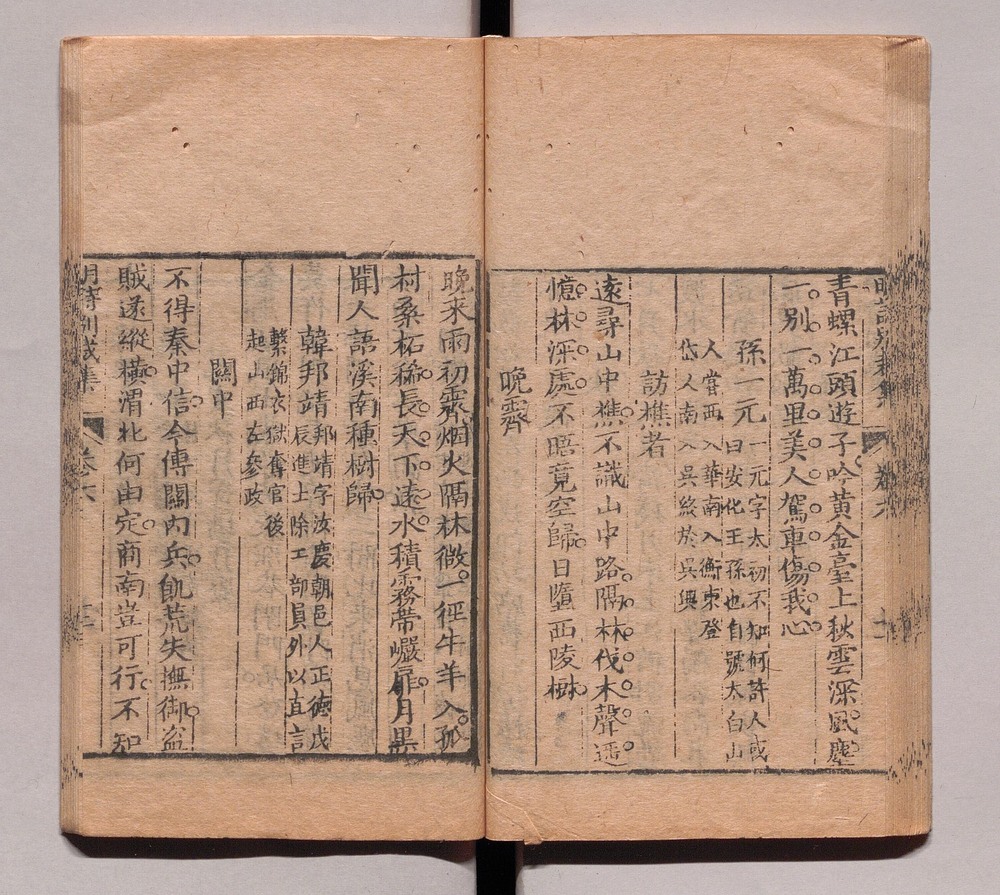 青螺江頭遊子吟黃金臺上秋雲深風塵
一別一萬里美人駕車傷我心
孫一元一元字太初不知何許人或
曰安化王孫也自號太白山
人嘗西入華南入衡東登
岱人南入吳終於吳興
訪樵者
遠尋山中樵不識山中路隔林伐木聲遥
憶林深處不晤竟空歸日墮西陵樹
晚霽
卷六
晚來雨初霽烟火隔林微一徑牛羊入孤
村桑柘稀長天下遠水積霧帶巖扉月果
聞人語溪南種樹歸
韓邦靖邦靖字汝慶朝邑人正德戊
辰進士除工部員外以直言
繫錦衣獄奪官後
起山西左參政
關中
不得秦中信今傳關內兵飢荒失撫御盜
賊遂縱橫渭北何由定商南豈可行不知
明詩別裁集
卷六